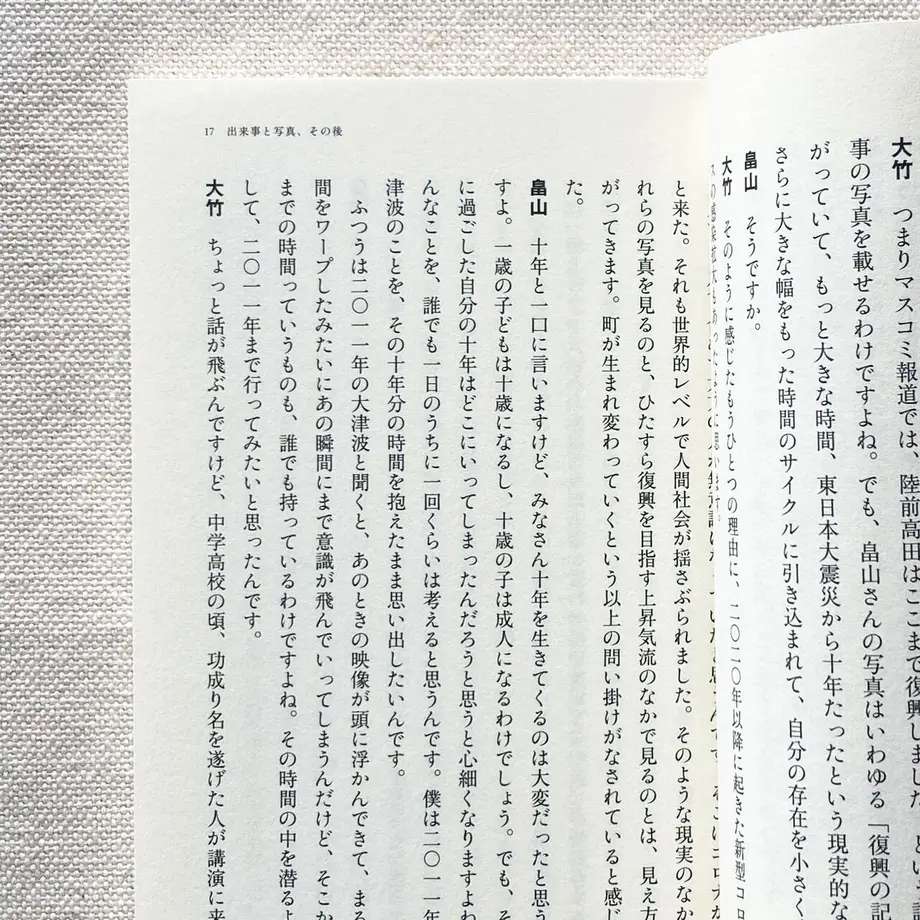 大竹　つまりマスコミ報道では、陸前高田はここまで復興しました、とい
事の写真を載せるわけですよね。でも、畠山さんの写真はいわゆる「復興の記
がっていて、もっと大きな時間、東日本大震災から十年たったという現実的な
さらに大きな幅をもった時間のサイクルに引き込まれて、自分の存在を小さく
畠山　そうですか。
大竹　そのように感じたもうひとつの理由に、二〇二〇年以降に起きた新型コ
スの感染拡大もあったように思います。
と来た。それも世界的レベルで人間社会が揺さぶられました。そのような現実のなか
れらの写真を見るのと、ひたすら復興を目指す上昇気流のなかで見るのとは、見え方
がってきます。町が生まれ変わっていくという以上の問い掛けがなされていると感じ
た。
畠山　十年と一口に言いますけど、みなさん十年を生きてくるのは大変だったと思う
すよ。一歳の子どもは十歳になるし、十歳の子は成人になるわけでしょう。でも、そ
に過ごした自分の十年はどこにいってしまったんだろうと思うと心細くなりますよね
んなことを、誰でも一日のうちに一回くらいは考えると思うんです。僕は二〇一一年
津波のことを、その十年分の時間を抱えたまま思い出したいんです。
ふつうは二〇一一年の大津波と聞くと、あのときの映像が頭に浮かんできて、まる
間をワープしたみたいにあの瞬間にまで意識が飛んでいってしまうんだけど、そこか
までの時間っていうものも、誰でも持っているわけですよね。その時間の中を潜るよ
して、二〇一一年まで行ってみたいと思ったんです。
大竹　ちょっと話が飛ぶんですけど、中学高校の頃、功成り名を遂げた人が講演に来
17　出来事と写真、その後